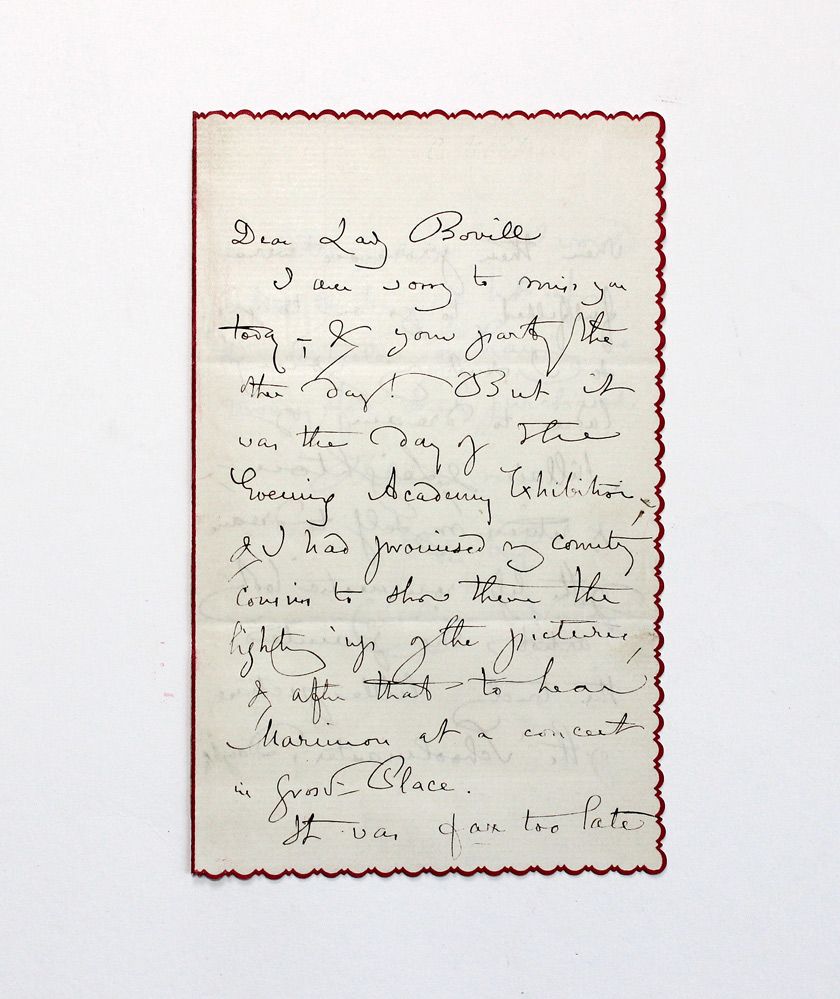 Dear Lady Bovill
I am sorry to miss you
today — & your party the
other day! But it
was the day of the
Evening Academy Exhibition,
& I had promised my country
cousins to show them the
lighting up of the pictures,
& after that to hear
Marimon at a concert
in Grosv- Place.
It was far too late